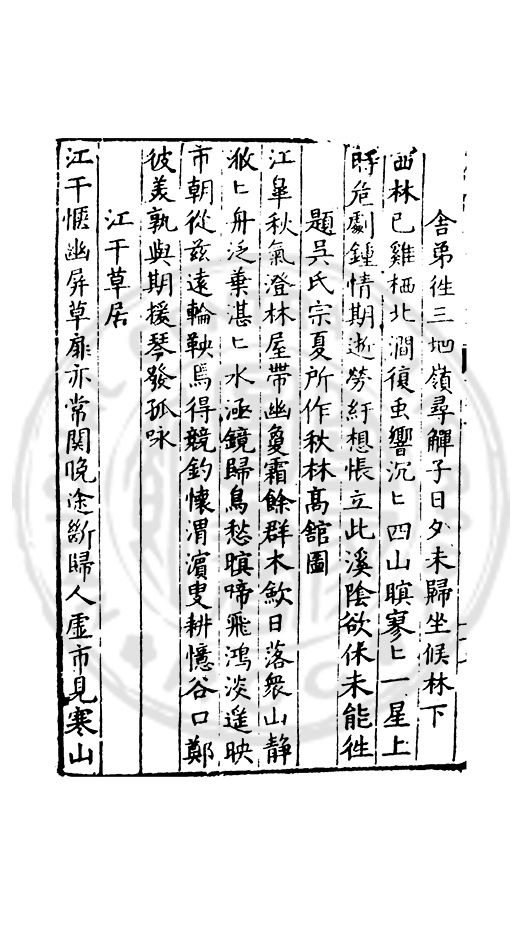 舎弟徃三地嶺尋觶子日夕未歸坐候林下
西林已雞栖北澗復䖝響沉匕四山暝寥匕一星上
時危劇鍾情期逝勞紆想悵立此溪陰欲休未能徃
題吳氏宗夏所作秋林髙舘圖
江臯秋氣澄林屋帶幽夐霜餘群木歛日落衆山静
㳊匕舟泛葉湛匕水涵鏡歸鳥愁暝啼飛鴻淡遥映
市朝從兹遠輪鞅焉得競釣懷渭濵叟耕憶谷口鄭
彼美孰與期援琴發孤咏
江干草居
江干愜幽屏草扉亦常関晚途斷歸人虚市見寒山